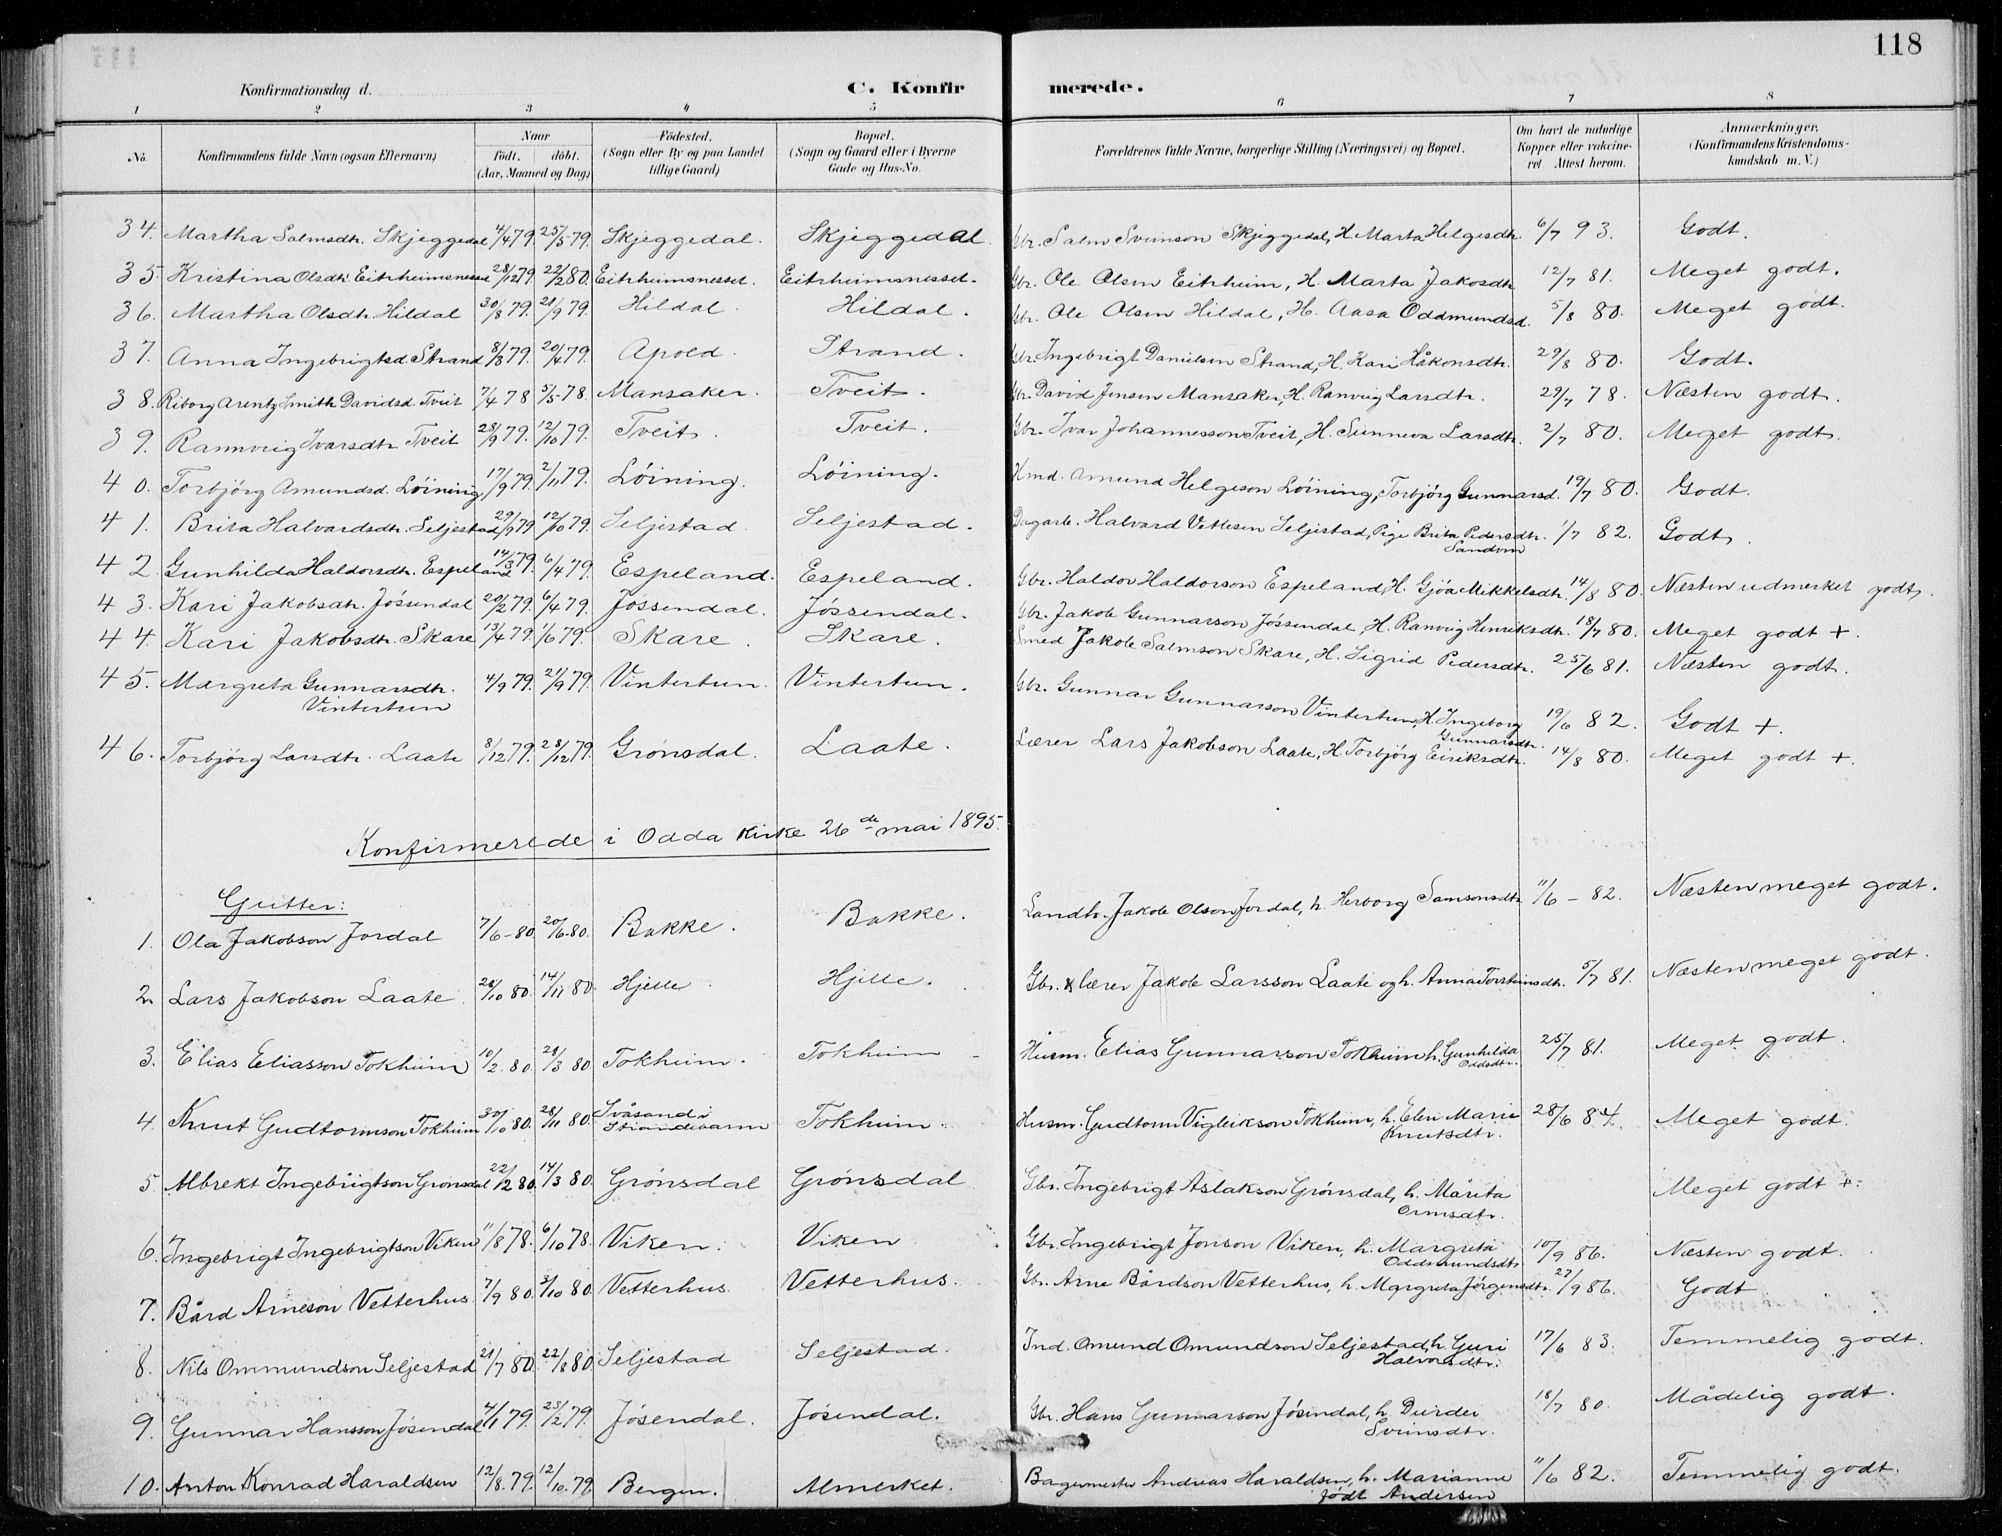 118
Konfirmationsdag d.
C. Konfirmerede.
1 2 3 4 5 6 7 8
No.
Konfirmandens fulde Navn (ogsaa Efternavn)
Naar
födt. döbt.
(Aar, Maaned og Dag)
Födested.
(Sogn eller By og paa Landet
tillige Gaard)
Bopæl.
(Sogn og Gaard eller i Byerne
Gade og Hus-No.
Forældrenes fulde Navne, borgerlige Stilling (Næringsvei) og Bopæl.
Om havt de naturlige
Kopper eller vakcine-
ret Attest herom.
Anmærkninger,
(Konfirmandens Kristendoms-
kundskab m. V.)
34. Martha Salmsdtr. Skjeggedal 4/4 79. 25/5 79. Skjeggedal. Skjeggedal. Gbr. Salm Sveinson Skjeggedal, H. Marta Helgesdtr. 6/7 93. Godt.
35. Kristina Olsdtr. Eitrheimsnesset 28/12 79 22/2 80. Eitrheimsnesset. Eitrheimsnesset. Gbr. Ole Olsen Eitrheim, H. Marta Jakosdtr 12/7 81. Meget godt.
36. Martha Olsdtr. Hildal 30/8 79. 21/9 79. Hildal. Hildal. Gbr. Ole Olsen Hildal, H. Aasa Oddmundsd. 5/8 80. Meget godt.
37. Anna Ingebrigtsd. Strand 8/3 79. 20/4 79. Apold. Strand. Gbr. Ingebrigt Danielsen Strand, H. Kari Håkonsdtr. 29/8 80. Godt.
38. Riborg Arentz Smith Davidsd. Tveit 7/4 78 5/5 78. Mansaker. Tveit. Gbr. David Jensen Mansaker, H. Ranveig Larsdtr. 29/7 78. Næsten godt.
39. Rannveig Ivarsdtr. Tveit 28/9 79. 12/10 79. Tveit. Tveit. Gbr. Ivar Johannesson Tveit, H. Sunneva Larsdtr. 2/7 80. Meget godt.
40. Torbjörg Amundsd. Löining 17/9 79. 2/11 79. Löining. Löining. Hmd. Amund Helgeson Löining, Torbjörg Gunnarsd. 19/7 80. Godt.
41. Brita Halvardsdtr. Seljestad 29/9 79 12/10 79. Seljestad. Seljestad. Dagarb. Halvard Vetlesen Seljestad, Pige Brita Pedersdtr. 1/7 82. Godt.
Sandven
42. Gunhilda Haldorsdtr. Espeland 14/3 79. 6/4 79. Espeland. Espeland. Gbr. Haldor Haldorson Espeland, H. Gjöa Mikkelsdtr. 14/8 80. Næsten udmerket godt.
43. Kari Jakobsdtr. Jössendal 20/2 79. 6/4 79. Jössendal. Jössendal. Gbr. Jakob Gunnarson Jössendal, H. Ranveig Henriksdtr. 18/7 80. Meget godt +.
44. Kari Jakobsdtr. Skare 13/4 79. 1/6 79. Skare. Skare. Smed Jakob Salmson Skare, H. Sigrid Pedersdtr. 25/6 81. Næsten godt.
45. Margreta Gunnarsdtr. 4/9 79. 21/9 79. Vintertun. Vintertun. Gbr. Gunnar Gunnarson Vintertun, H. Ingeborg 19/6 82. Godt +.
Vintertun Gunnarsdtr.
46. Torbjörg Larsdtr. Laate 8/12 79. 28/12 79. Grönsdal. Laate. Lærer Lars Jakobson Laate, H. Torbjörg Eiriksdtr. 14/8 80. Meget godt +.
Konfirmerede i Odda kirke 26de mai 1895.
Gutter:
1. Ola Jakobson Jordal 7/6-80 20/6-80. Bakke. Bakke. Landh. Jakob Olson Jordal, h. Herborg Samsonsdtr. 11/6-82. Næsten meget godt.
2. Lars Jakobson Laate. 24/10 80. 14/11 80. Hjelle. Hjelle. Gbr. & lærer Jakob Larsson Laate og h. Anna Torsteinsdtr. 5/7 81. Næsten meget godt.
3. Elias Eliasson Tokheim 10/2 80. 28/3 80 Tokheim. Tokheim Husm. Elias Gunnarson Tokheim h. Gunhilda 25/7 81. Meget godt.
Oddsdtr.
4. Knut Gudtormson Tokheim 30/10 80. 28/11 80. Svåsand i Tokheim. Husm. Gudtorm Vigleikson Tokheim, h. Elen Marie 28/6 84. Meget godt.
Strandebarm Knutsdtr.
5. Albrekt Ingebrigtson Grönsdal 22/2 80. 14/3 80. Grönsdal Grönsdal Gbr. Ingebrigt Aslakson Grönsdal, h. Marita Meget godt +.
Ormsdtr.
6. Ingebrigt Ingebrigtson Viken 11/8 78. 6/10 78. Viken. Viken Gbr. Ingebrigt Jonson Viken, h. Margreta 10/9 86. Næsten godt.
Oddmundsdtr
7. Bård Arneson Vetterhus 7/9 80. 3/10 80. Vetterhus. Vetterhus. Gbr. Arne Bårdson Vetterhus, h. Margreta Jörgensdtr. 27/9 86. Godt
8. Nils Ommundson Seljestad 21/7 80. 22/8 80. Seljestad Seljestad. Ind. Omund Omundson Seljestad, h. Guri 17/6 83. Temmelig godt.
Halvorsdtr.
9. Gunnar Hansson Jösendal 4/1 79. 23/2 79. Jösendal. Jösendal. Gbr. Hans Gunnarson Jösendal, h. Durdei 18/7 80. Mådelig godt.
Sveinsdtr.
10. Anton Konrad Haraldsen 12/8. 79. 12/10. 79. Bergen. Almerket. Bagermester Andreas Haraldsen, h. Marianne 11/6 82. Temmelig godt.
födt Andersen